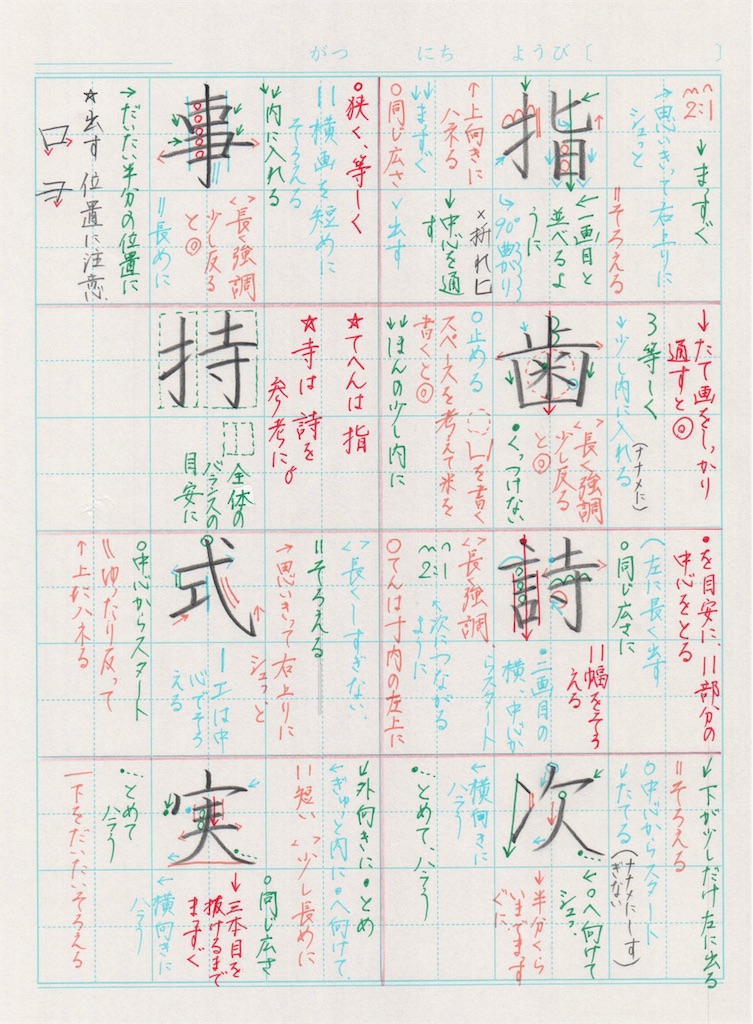 がつ にち ようび〔 〕
指
2:1
↓まっすぐ
→思いきって右上りに
シュッと
॥そろえる
←一画目と
並べるよ
うに
↳90°曲がり
×折れ
↓中心を通
す
↑上向きに
ハネる
↓↓まっすぐ
○同じ広さ
↓出す
事
○狭く、等しく
॥横画を短めに
そろえる
↓↓内に入れる
<>長く強調
少し反る
と◎
॥長めに
→だいたい半分の位置に
☆出す位置に注意
歯
↓たて画をしっかり
通すと◎
3等しく
↓少し内に入れる
(ナナメに)
<>長く強調
少し反る
と◎
●くっつけない
○止める
凵を書く
スペースを考えて米を
書くと◎
↓↓ほんの少し内に
持
☆てへんは指
☆寺は詩を
参考に。
全体の
バランスの
目安に
詩
●を目安に、॥部分の
中心をとる
へ左に長く出す
○同じ広さに
॥幅をそろ
える
●二画目の
横、中心か
らスタート
2:1
<>長く強調
↖次につながる
ように
○てんは寸内の左上に
式
<>長くしすぎない
॥そろえる
→思いきって右上りに
シュッと
ー工は中
心でそろ
える
○中心からスタート
॥ゆったり反って
↑上にハネる
次
↓下が少しだけ左に出る
॥そろえる
○中心からスタート
↓たてる(ナナメにしす
ぎない)
←○へ向けて
シュッ
↓半分くら
いまでまっす
ぐに
←横向きに
ハラう
●…とめて、ハラう
実
↓外向きに●とめ
←ぎゅっと内に○へ向けて
॥短い<>少し長めに
○同じ広さ
↓三本目を
抜けるまで
まっすぐ
←横向きに
ハラう
●…とめて
ハラう
一下をだいたいそろえる